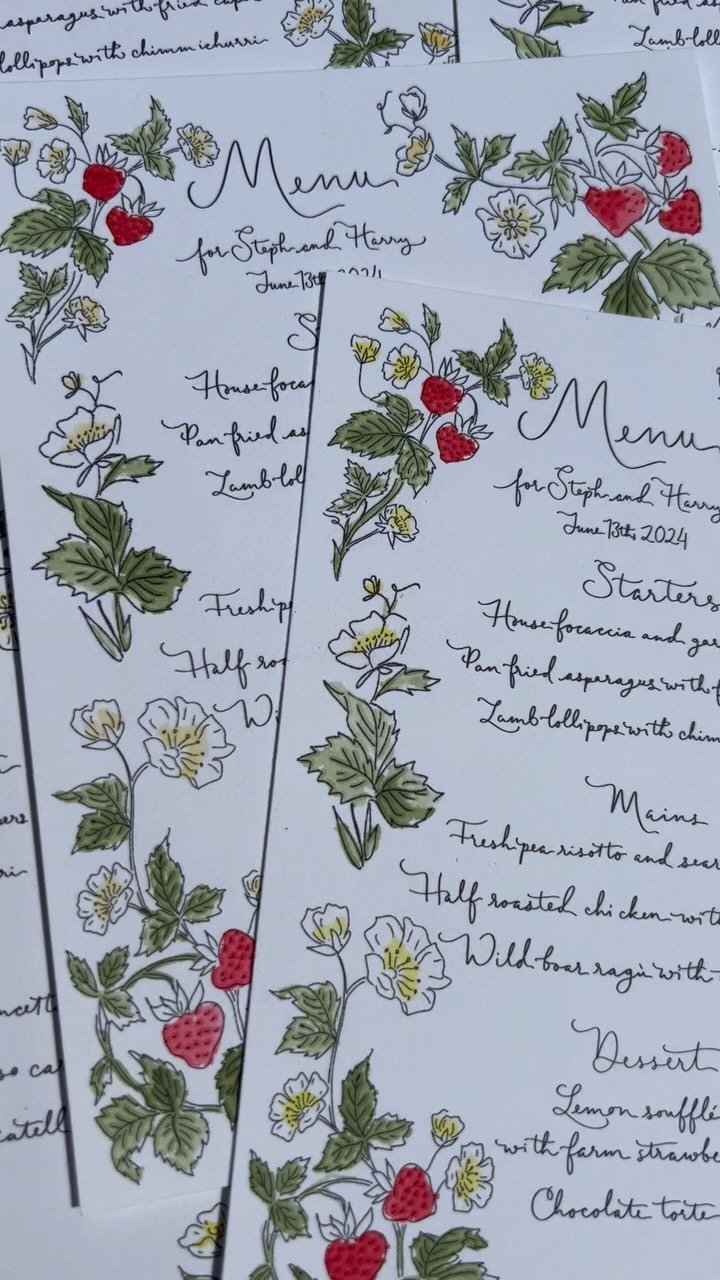 asparagus with fried cape
lollipops with chimmichurri
Lamb lol
Menu
for Steph and Harry
June 13th 2024
House foca
Pan fried as
Lamb lol
Fresh p
Half roa
Wi
Menu
for Steph and Harry
June 13th 2024
Starters
House focaccia and gar
Pan fried asparagus with f
Lamb lollipops with chim
Mains
Fresh pea risotto and sear
Half roasted chicken with
Wild boar ragù with
Dessert
Lemon soufflé
with farm strawbe
Chocolate torte